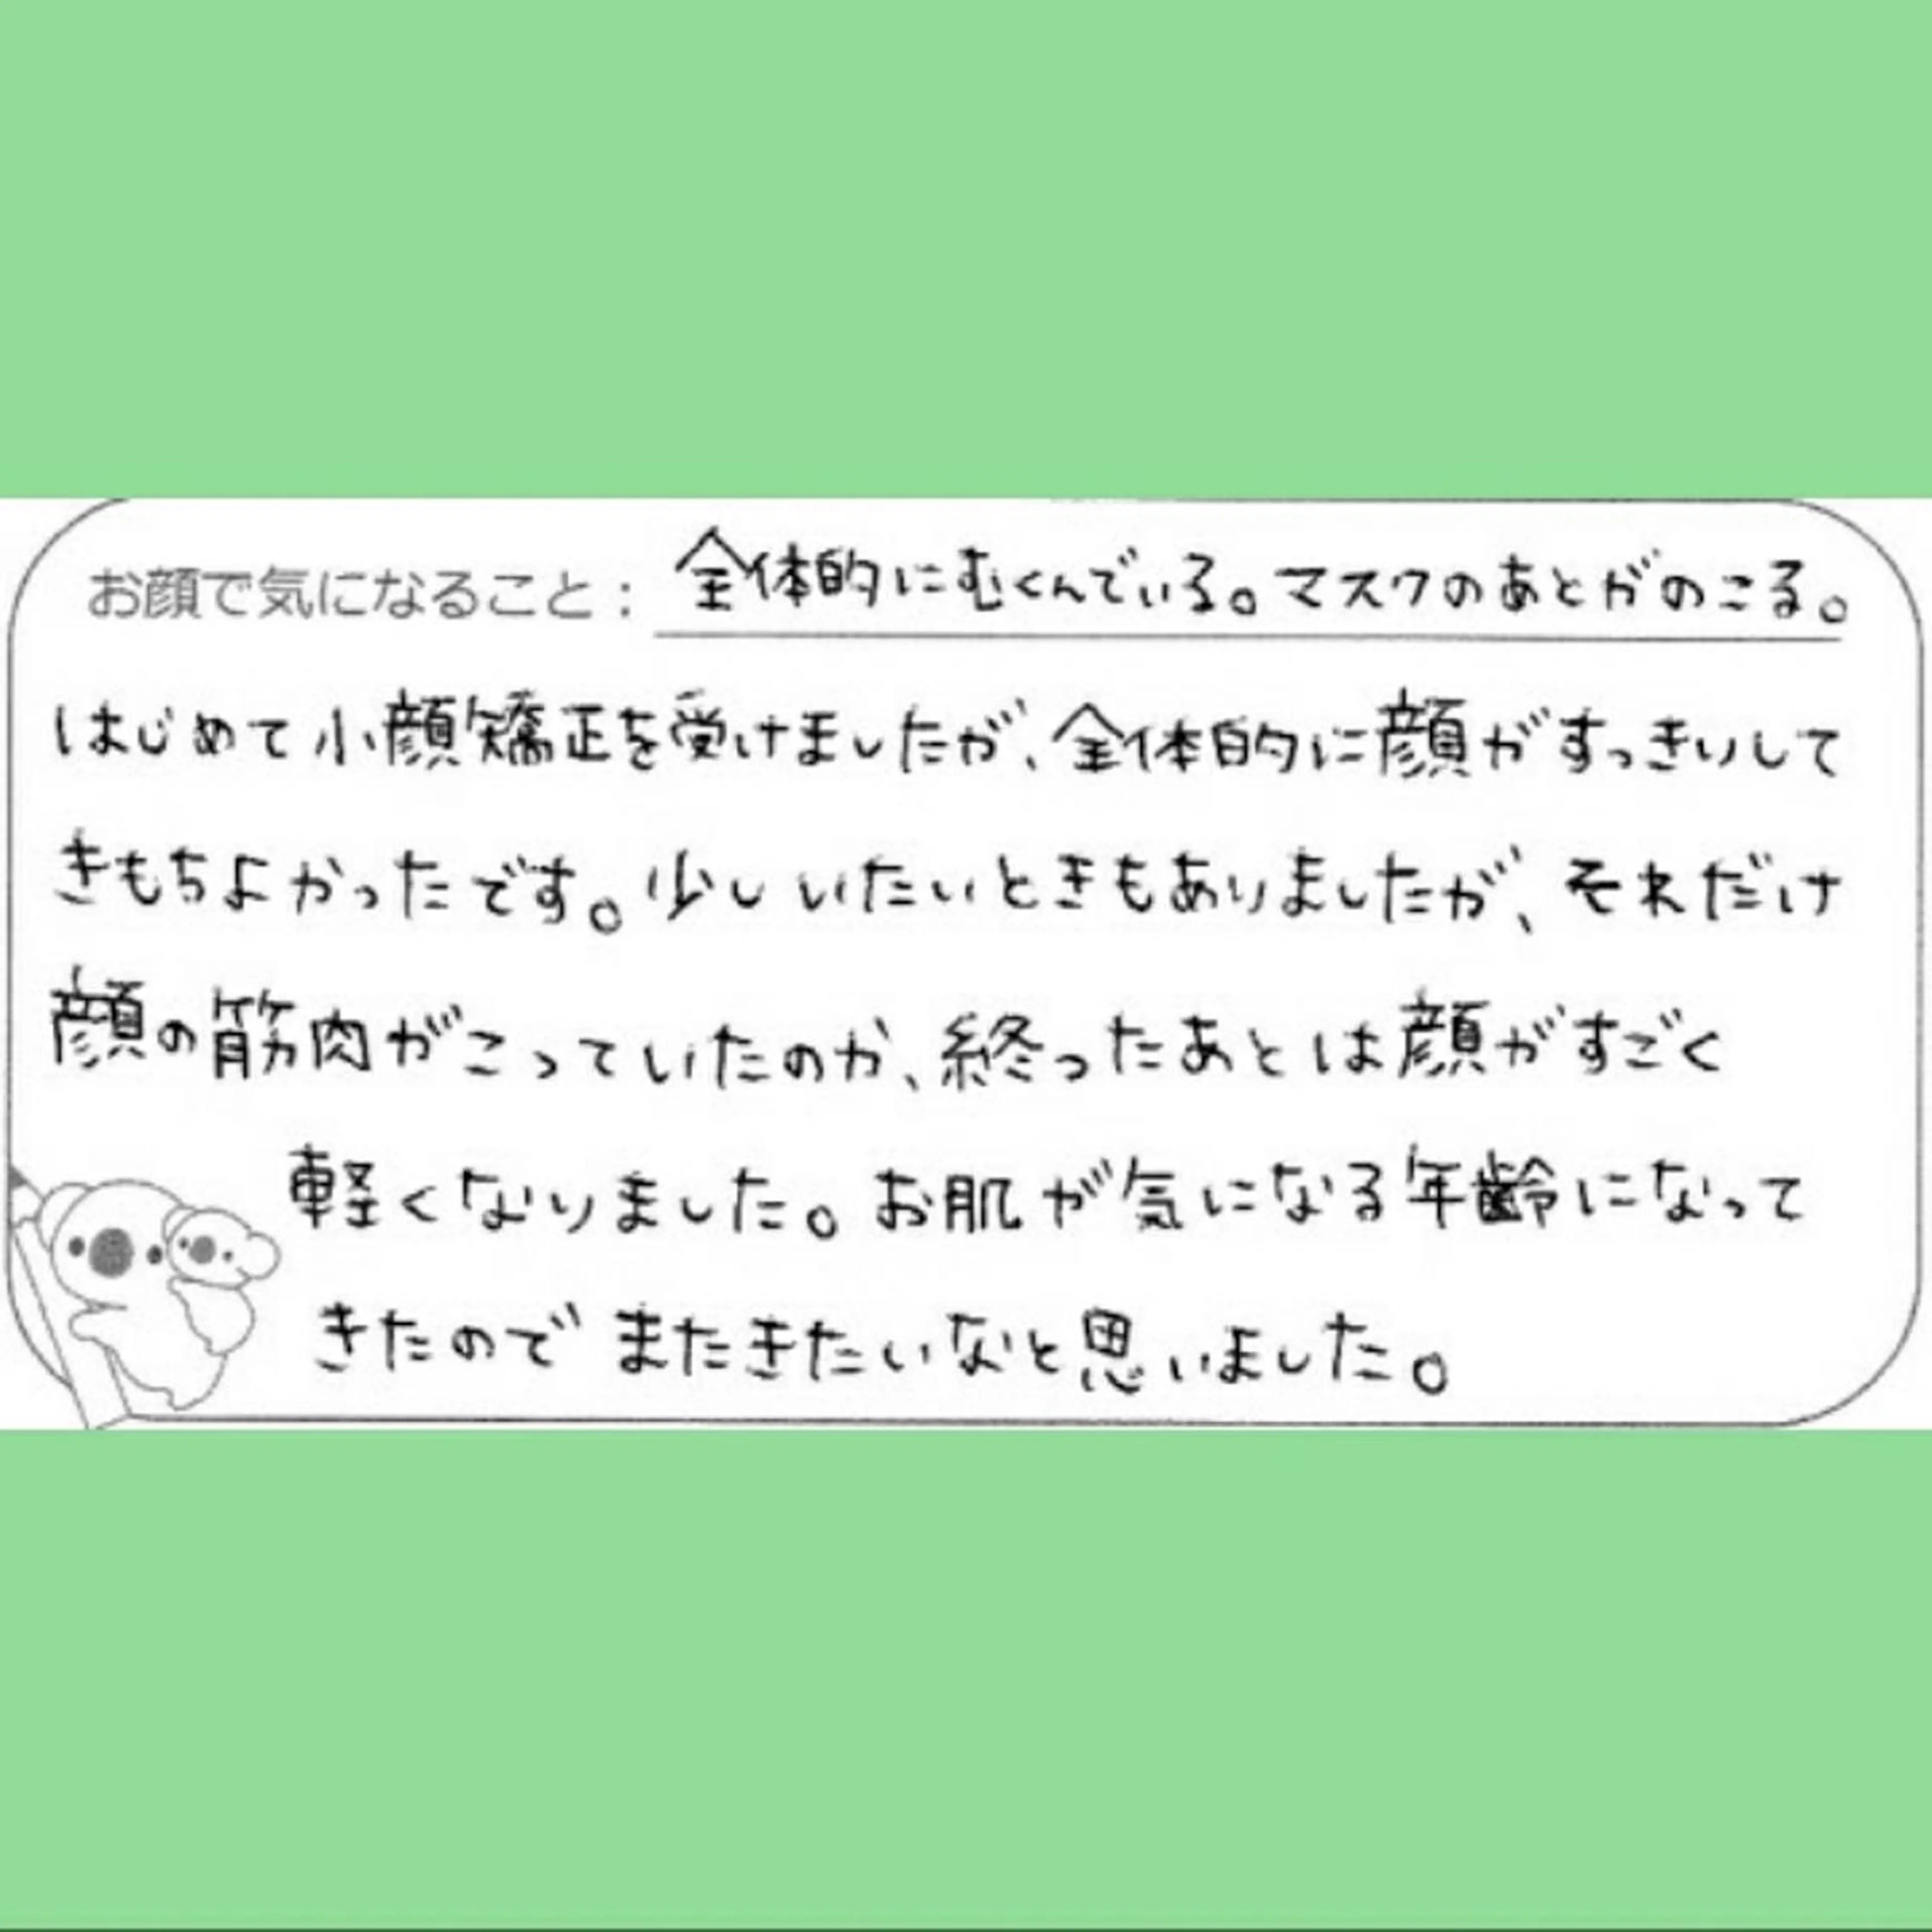 お顔で気になること：全体的にむくんでいる。マスクのあとがのこる。
はじめて小顔矯正を受けましたが、全体的に顔がすっきりして
きもちよかったです。少しいたいときもありましたが、それだけ
顔の筋肉がこっていたのか、終ったあとは顔がすごく
軽くなりました。お肌が気になる年齢になって
きたのでまたきたいなと思いました。